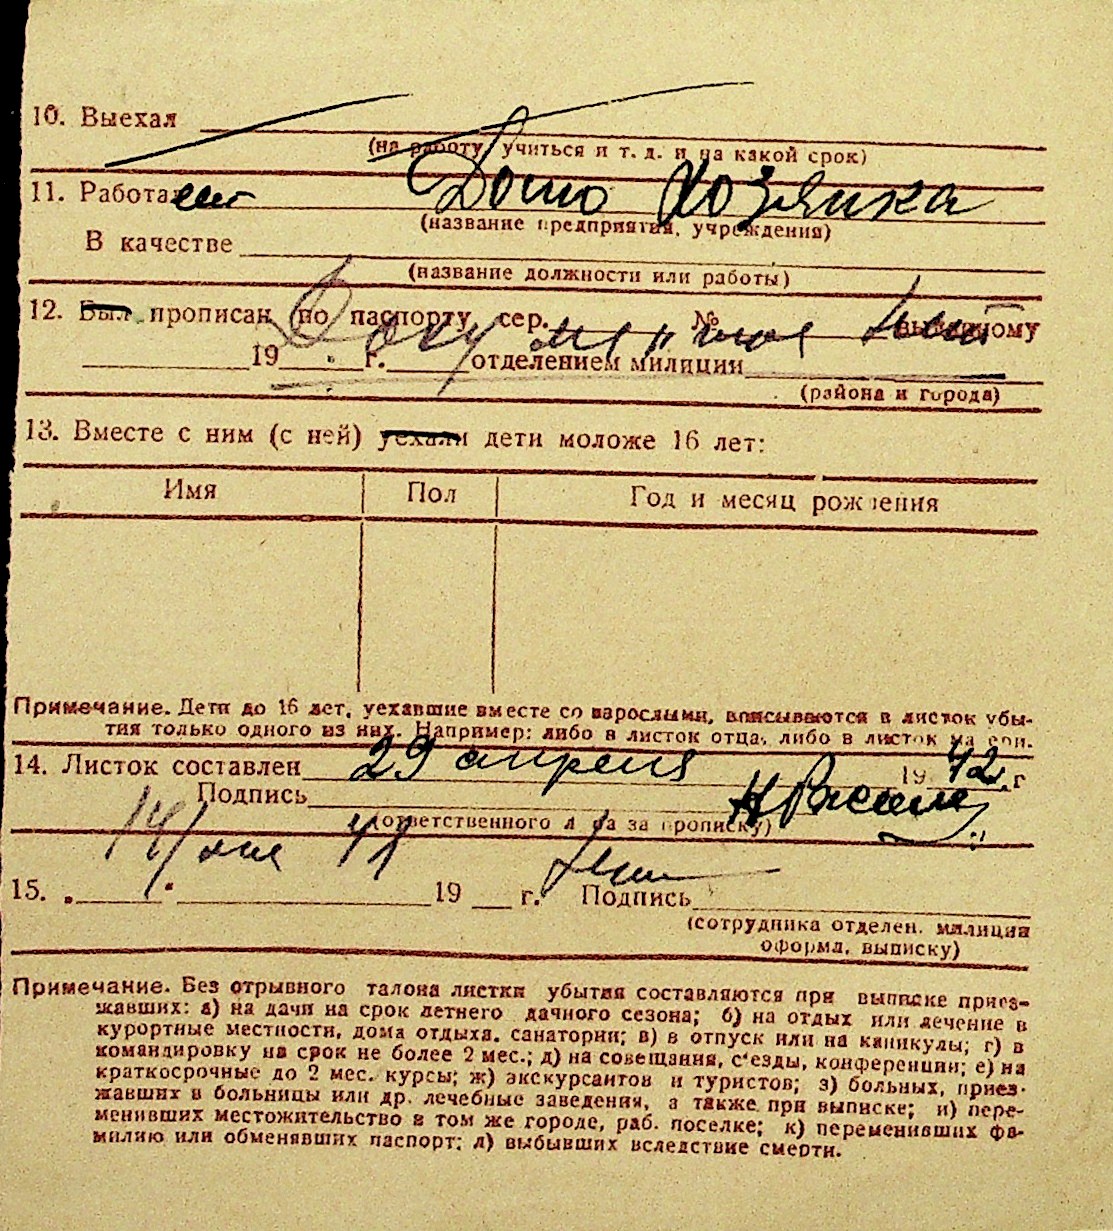 10. Выехал
(на работу, учиться и т. д. и на какой срок)
11. Работает Домо Хозяика
(название предприятия, учреждения)
В качестве
(название должности или работы)
12. Был прописан по паспорту, сер. № выданному
19 г. отделением милиции
(района и города)
13. Вместе с ним (с ней) уехали дети моложе 16 лет:
Имя Пол Год и месяц рождения
Примечание. Дети до 16 лет, уехавшие вместе со взрослыми, вписываются в листок убы-
тия только одного из них. Например: либо в листок отца, либо в листок ма ери.
14. Листок составлен 29 апреля 19 42 г
Подпись
(ответственного л ца за прописку)
15. 19 г. Подпись
(сотрудника отделен. милиции
оформл. выписку)
Примечание. Без отрывного талона листки убытия составляются при выписке приез-
жавших: а) на дачи на срок летнего дачного сезона; б) на отдых или лечение в
курортные местности, дома отдыха, санатории; в) в отпуск или на каникулы; г) в
командировку на срок не более 2 мес.; д) на совещания, с'езды, конференции; е) на
краткосрочные до 2 мес. курсы; ж) экскурсантов и туристов; з) больных, приез-
жавших в больницы или др. лечебные заведения, а также при выписке; и) пере-
менивших местожительство в том же городе, раб. поселке; к) переменивших фа-
милию или обменявших паспорт; л) выбывших вследствие смерти.